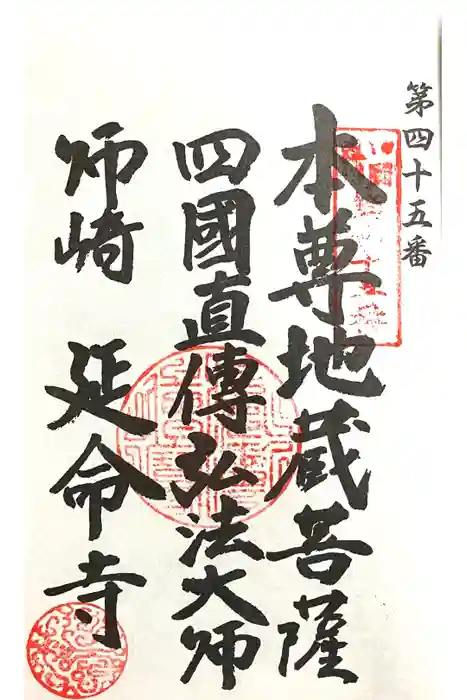 第四十五番
本尊地蔵菩薩
四國直傳弘法大師
師崎 延命寺